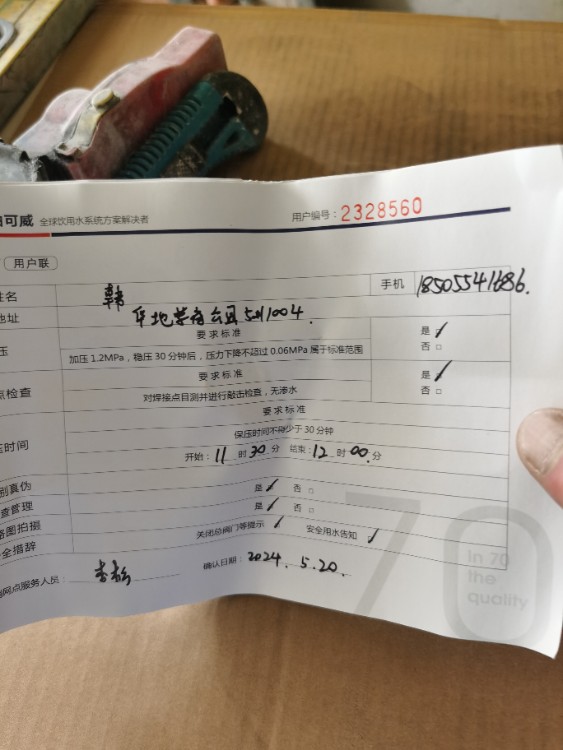 可威 全球饮用水系统方案解决者
用户编号：2328560
用户联
姓名 韩 手机 18505541686.
地址 华地学府公园 5#1004.
压 要求标准 是 ✓
加压1.2MPa，稳压30分钟后，压力下降不超过0.06MPa属于标准范围 否 □
点检查 要求标准 是 ✓
对焊接点目测并进行敲击检查，无渗水 否 □
要求标准
压时间 保压时间不得少于30分钟
开始：11 时 30 分 结束：12 时 00 分
别真伪 是 ✓ 否 □
查管理 是 ✓ 否 □
路图拍摄 关闭总阀门等提示 ✓ 安全用水告知 ✓
全措辞
网点服务人员： 确认日期：2024.5.20.
70
In 70
the
quality